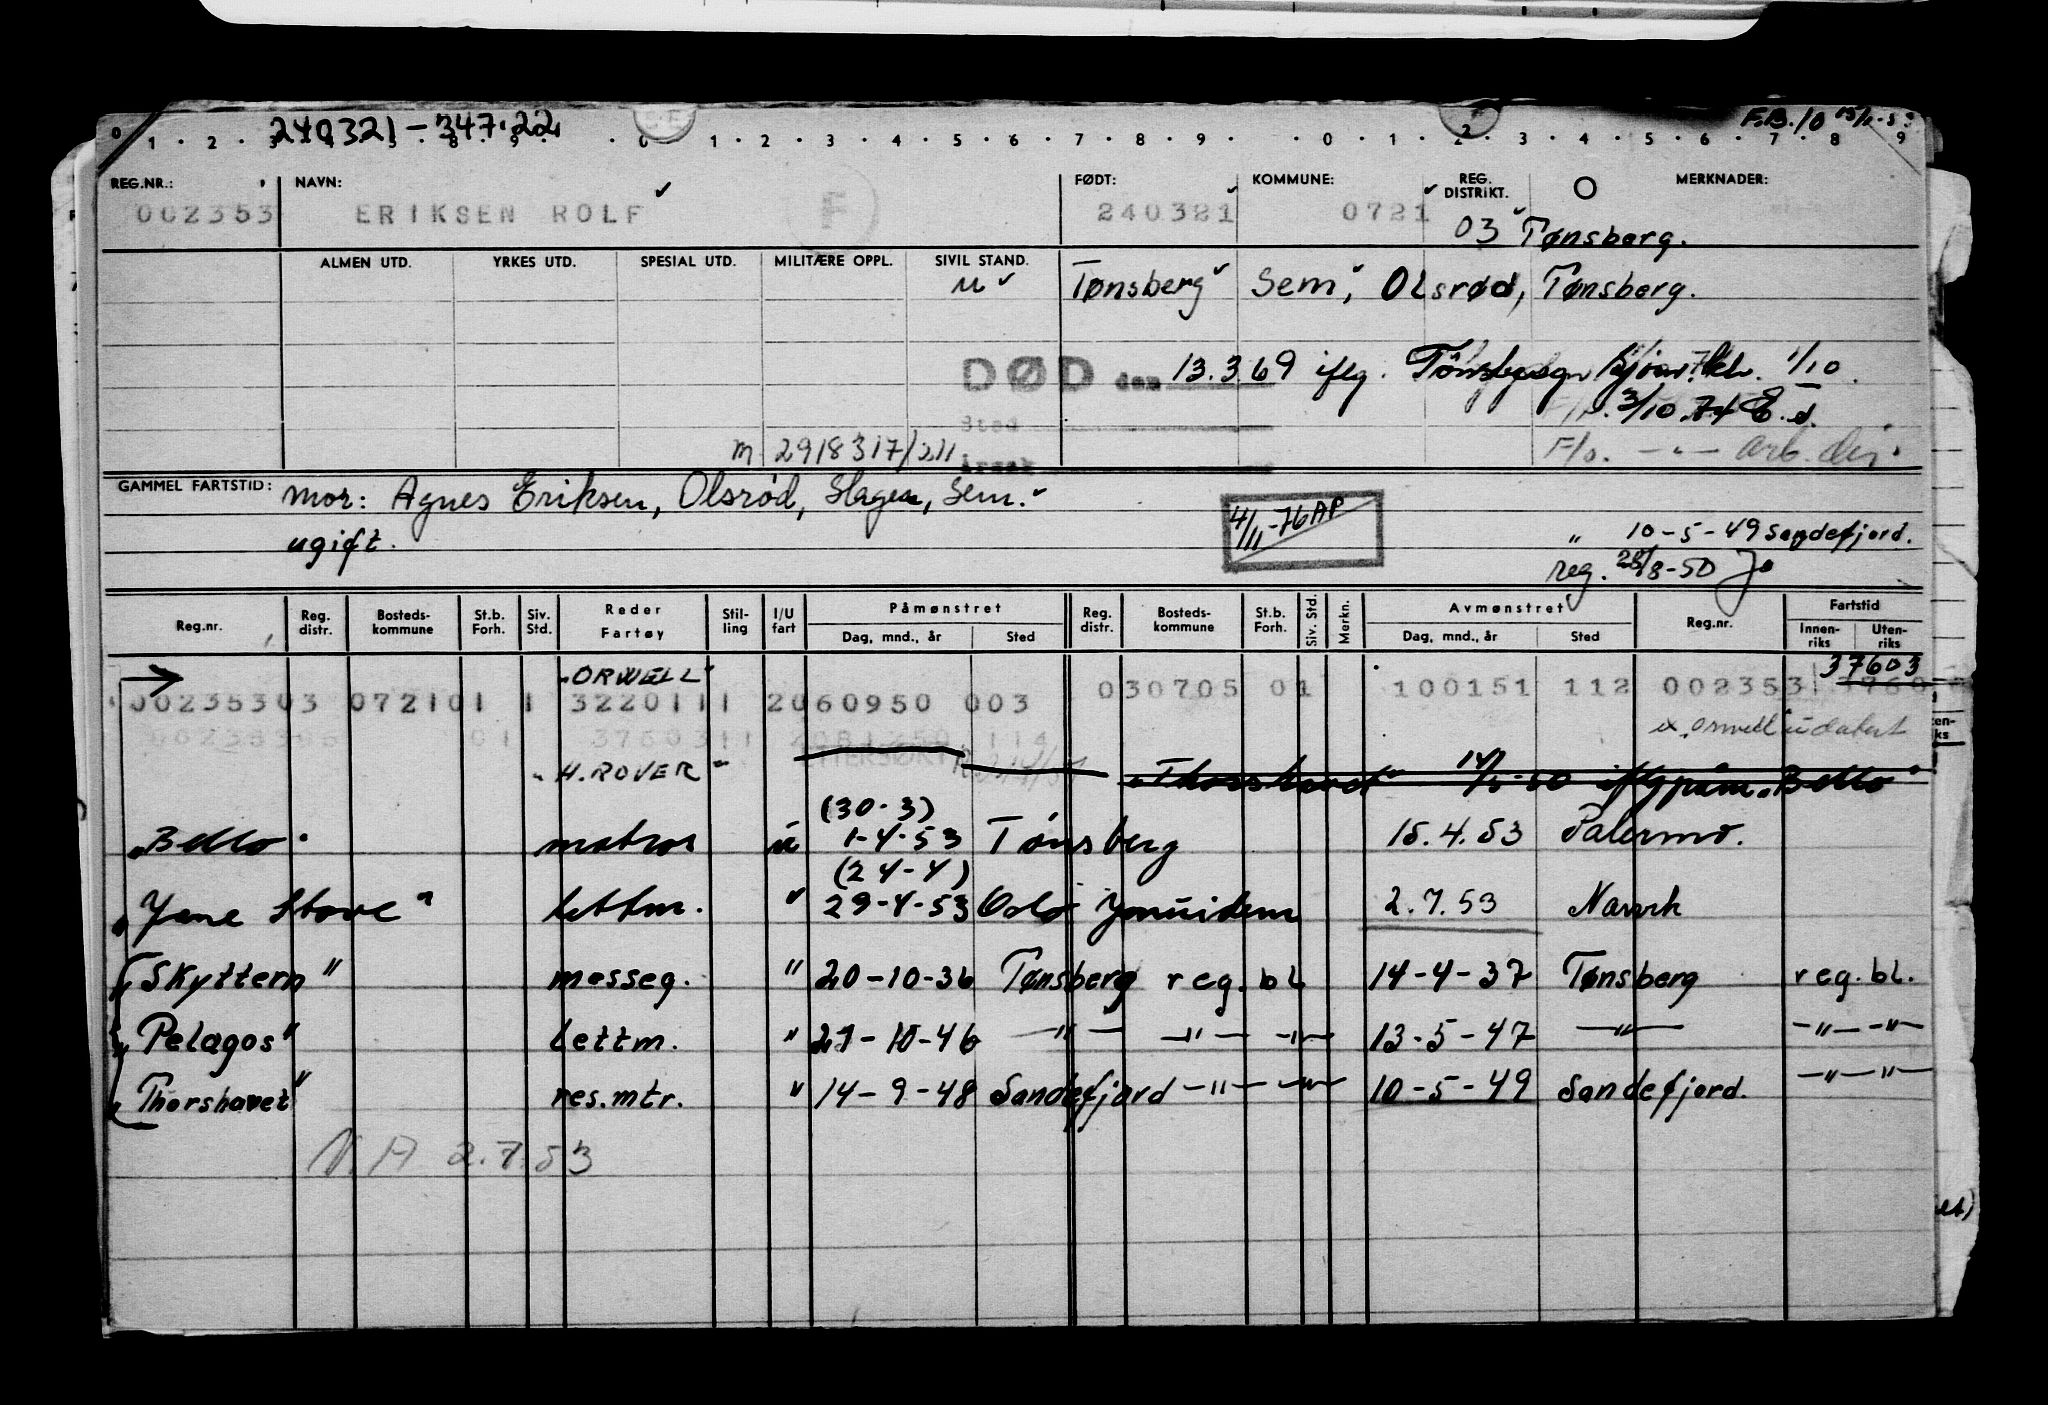 240321-347.22
F.B. 10
0 1 2 3 4 5 8 9 0 1 2 3 4 5 6 7 8 9 0 1 2 3 4 5 6 7 8 9
REG.NR.: NAVN: FØDT: KOMMUNE: REG. DISTRIKT. MERKNADER:
002353 ERIKSEN ROLF F 240321 0721 03 Tønsberg.
ALMEN UTD. YRKES UTD. SPESIAL UTD. MILITÆRE OPPL. SIVIL STAND.
u Tønsberg Sem, Olsrød, Tønsberg.
DØD den 13.3 69 iflg. 1/10
3/10.74
Sted
m 2918317/211 Årsak F/o. -"- arb.dir.
GAMMEL FARTSTID: Mor: Agnes Eriksen, Olsrød, Slagen, Sem.
ugift.
4/11-76 AP
" 10-5-49 Sandefjord.
reg. 28/8-50
Reg.nr. Reg. distr. Bosteds-kommune St.b. Forh. Siv. Std. Reder Fartøy Stil-ling I/U fart Påmønstret Dag, mnd., år Sted Reg. distr. Bosteds-kommune St.b. Forh. Siv. Std. Merkn. Avmønstret Dag, mnd., år Sted Reg.nr. Fartstid Innen-riks Uten-riks
"ORWELL" 37603
00235303 072101 1 3220111 2060950 003 030705 01 100151 112 002353
01 3760311 114
"H. ROVER" "Thorshavet" 50 iflg påm. "Bello"
(30-3)
"Bello" matros u 1-4-53 Tønsberg 15.4.53 Palermo.
(24-4)
"Jane Stove" lettm. " 29-4-53 Oslo Ymuiden 2.7.53 Narvik
"Skyttern" messeg. " 20-10-36 Tønsberg reg. bl 14-4-37 Tønsberg reg. bl.
"Pelagos" lettm. " 21-10-46 -"- -"- -"- 13-5-47 -"- -"- -"-
"Thorshavet" res.mtr. " 14-9-48 Sandefjord -"- -"- 10-5-49 Sandefjord. -"- -"-
N.A 2.7.53